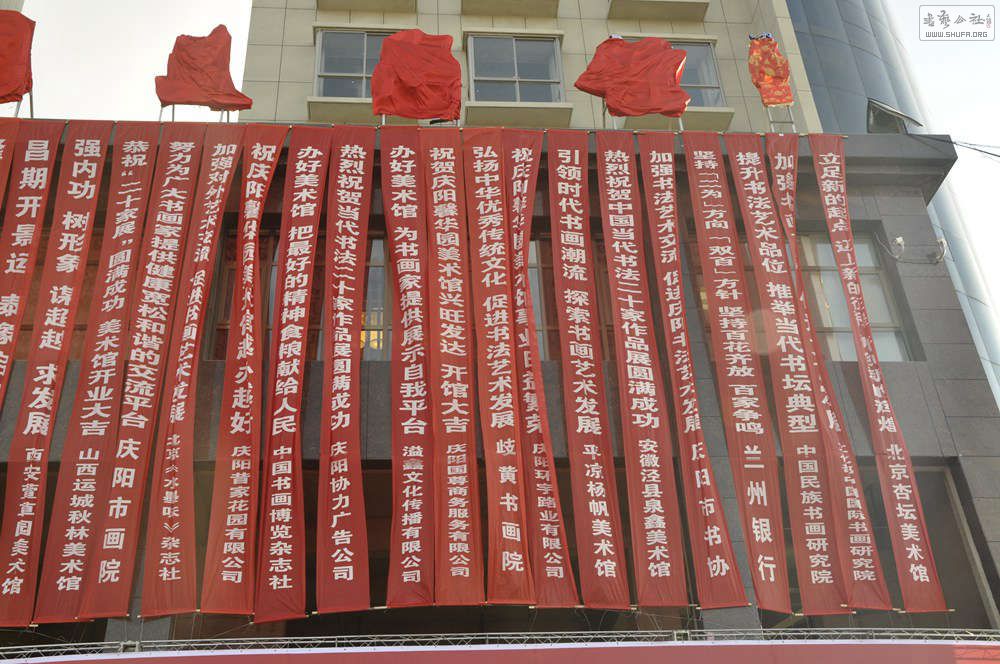 书艺公社
WWW.SHUFA.ORG
昌期开景运
强内功 树形象 谋起越 求发展
恭祝“二十家展”圆满成功 美术馆开业大吉 山西运城秋林美术馆
努力为广大书画家提供健康宽松和谐的交流平台 庆阳市画院
加强对外艺术交流 促进书画艺术发展
祝庆阳 办越好 庆阳首家花园有限公司
办好美术馆 把最好的精神食粮献给人民 中国书画博览杂志社
热烈祝贺当代书法二十家作品展圆满成功 庆阳协力广告公司
办好美术馆 为书画家提供展示自我平台 溢鑫文化传播有限公司
祝贺庆阳馨华园美术馆兴旺发达 开馆大吉 庆阳国尊商务服务有限公司
弘扬中华优秀传统文化 促进书法艺术发展 歧黄书画院
祝庆阳 美术馆事业日益繁荣
引领时代书画潮流 探索书画艺术发展 平凉杨帆美术馆
热烈祝贺中国当代书法二十家作品展圆满成功 安徽泾县泉鑫美术馆
加强书法艺术交流 促进庆阳书法艺术发展 庆阳市书协
坚持“二为”方向 “双百”方针 坚持百花齐放 百家争鸣 兰州银行
提升书法艺术品位 推举当代书坛典型 中国民族书画研究院
加强书画
立足新的起点 迈上新的征程 北京杏坛美术馆